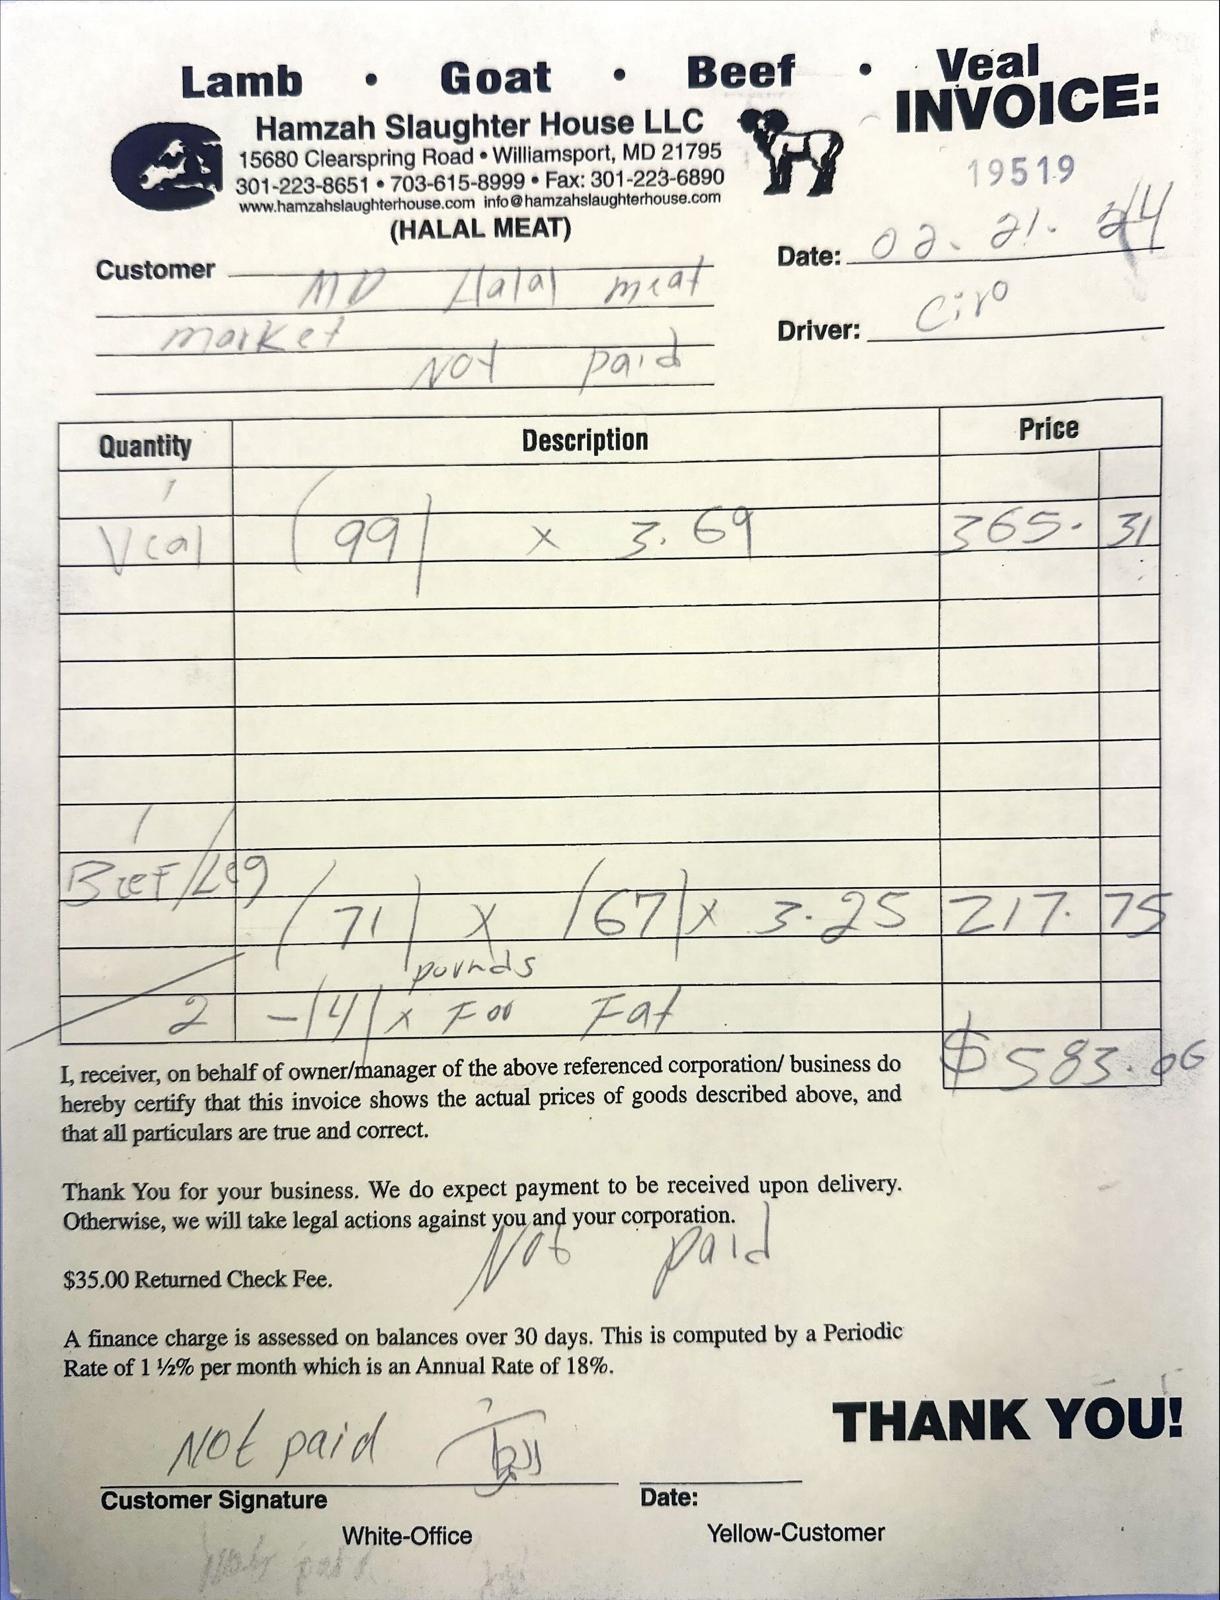 Lamb • Goat • Beef • Veal
INVOICE:
Hamzah Slaughter House LLC
15680 Clearspring Road • Williamsport, MD 21795
301-223-8651 • 703-615-8999 • Fax: 301-223-6890
www.hamzahslaughterhouse.com info@hamzahslaughterhouse.com
(HALAL MEAT)
19519
Date: 02.21.24
Driver: Ciro
Customer MD Halal meat
market
Not paid
Quantity Description Price
1
Veal (99) x 3.69 365. 31
1
Beef/Leg
(71) x (67) x 3.25 217. 75
pounds
2 -(4) x For Fat
$583.06
I, receiver, on behalf of owner/manager of the above referenced corporation/ business do
hereby certify that this invoice shows the actual prices of goods described above, and
that all particulars are true and correct.
Thank You for your business. We do expect payment to be received upon delivery.
Otherwise, we will take legal actions against you and your corporation.
Not paid
$35.00 Returned Check Fee.
A finance charge is assessed on balances over 30 days. This is computed by a Periodic
Rate of 1 ½% per month which is an Annual Rate of 18%.
THANK YOU!
Not paid
Customer Signature Date:
White-Office Yellow-Customer